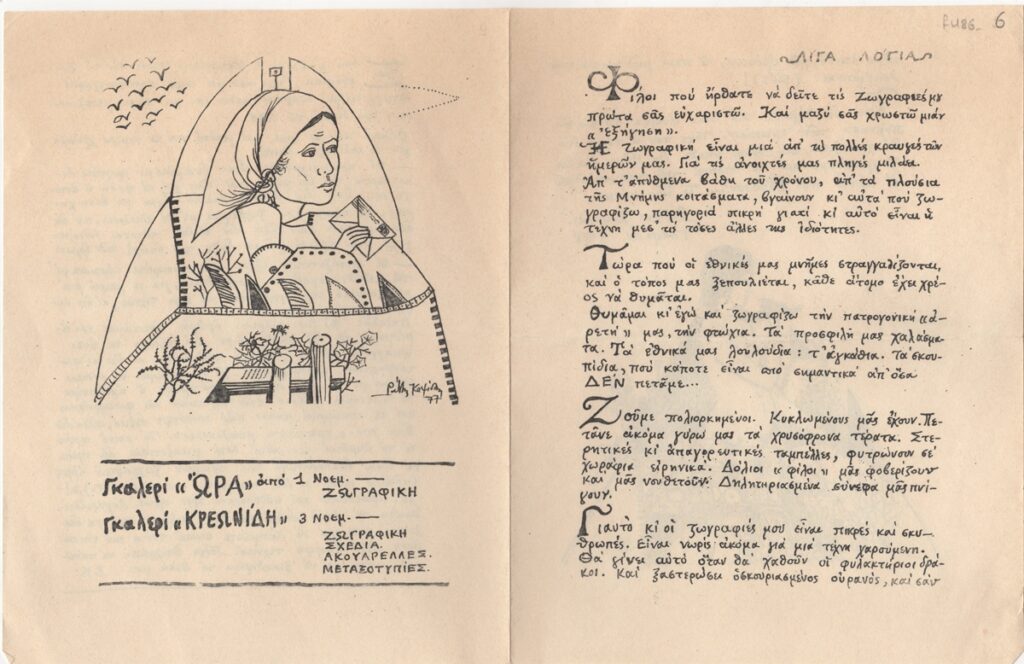 77
Γκαλερί «ΩΡΑ» ἀπό 1 Νοεμ. —
ΖΩΓΡΑΦΙΚΗ
Γκαλερί «ΚΡΕΩΝΙΔΗ» 3 Νοεμ. —
ΖΩΓΡΑΦΙΚΗ
ΣΧΕΔΙΑ.
ΑΚΟΥΑΡΕΛΛΕΣ.
ΜΕΤΑΞΟΤΥΠΙΕΣ.
6
ΛΙΓΑ ΛΟΓΙΑ
Φίλοι πού ἤρθατε νά δεῖτε τίς Ζωγραφιές μου
πρῶτα σᾶς εὐχαριστῶ. Καί μαζύ σᾶς χρωστῶ μιάν
«ἐξήγηση».
Ἡ Ζωγραφική εἶναι μιά ἀπ' τίς πολλές κραυγές τῶν
ἡμερῶν μας. Γιά τίς ἀνοιχτές μας πληγές μιλάει.
Ἀπ' τ' ἀπύθμενα βάθη τοῦ χρόνου, ἀπ' τά πλούσια
τῆς Μνήμης κοιτάσματα, βγαίνουν κι' αὐτά πού ζω-
γραφίζω, παρηγοριά πικρή γιατί κι' αὐτό εἶναι ἡ
τέχνη μές τίς τόσες ἄλλες της ἰδιότητες.
Τώρα πού οἱ ἐθνικές μας μνῆμες στραγγαλίζονται,
καί ὁ τόπος μας ξεπουλιέται, κάθε ἄτομο ἔχει χρέ-
ος νά θυμᾶται.
Θυμᾶμαι κι' ἐγώ καί ζωγραφίζω τήν πατρογονική «ἀ-
ρετή» μας, τήν φτώχια. Τά προσφιλῆ μας χαλάσμα-
τα. Τά ἐθνικά μας λουλούδια: τ' ἀγκάθια. Τά σκου-
πίδια, πού κάποτε εἶναι πιό σημαντικά ἀπ' ὅσα
ΔΕΝ πετᾶμε...
Ζοῦμε πολιορκημένοι. Κυκλωμένους μᾶς ἔχουν. Πε-
τᾶνε ἀκόμα γύρω μας τά χρυσόφρονα τέρατα. Στε-
ρητικές κι' ἀπαγορευτικές ταμπέλλες, φυτρώνουν σέ
χωράφια εἰρηνικά. Δόλιοι «φίλοι» μᾶς φοβερίζουν
καί μᾶς νουθετοῦν. Δηλητηριασμένα σύνεφα μᾶς πνί-
γουν.
Γιαυτό κι' οἱ ζωγραφιές μου εἶναι πικρές καί σκυ-
θρωπές. Εἶναι νωρίς ἀκόμα γιά μιά τέχνη χαρούμενη.
Θά γίνει αὐτό ὅταν θά χαθοῦν οἱ φυλακτήριοι δρά-
κοι. Καί ξαστερώσει ὁ σκουριασμένος οὐρανός, καί σάν